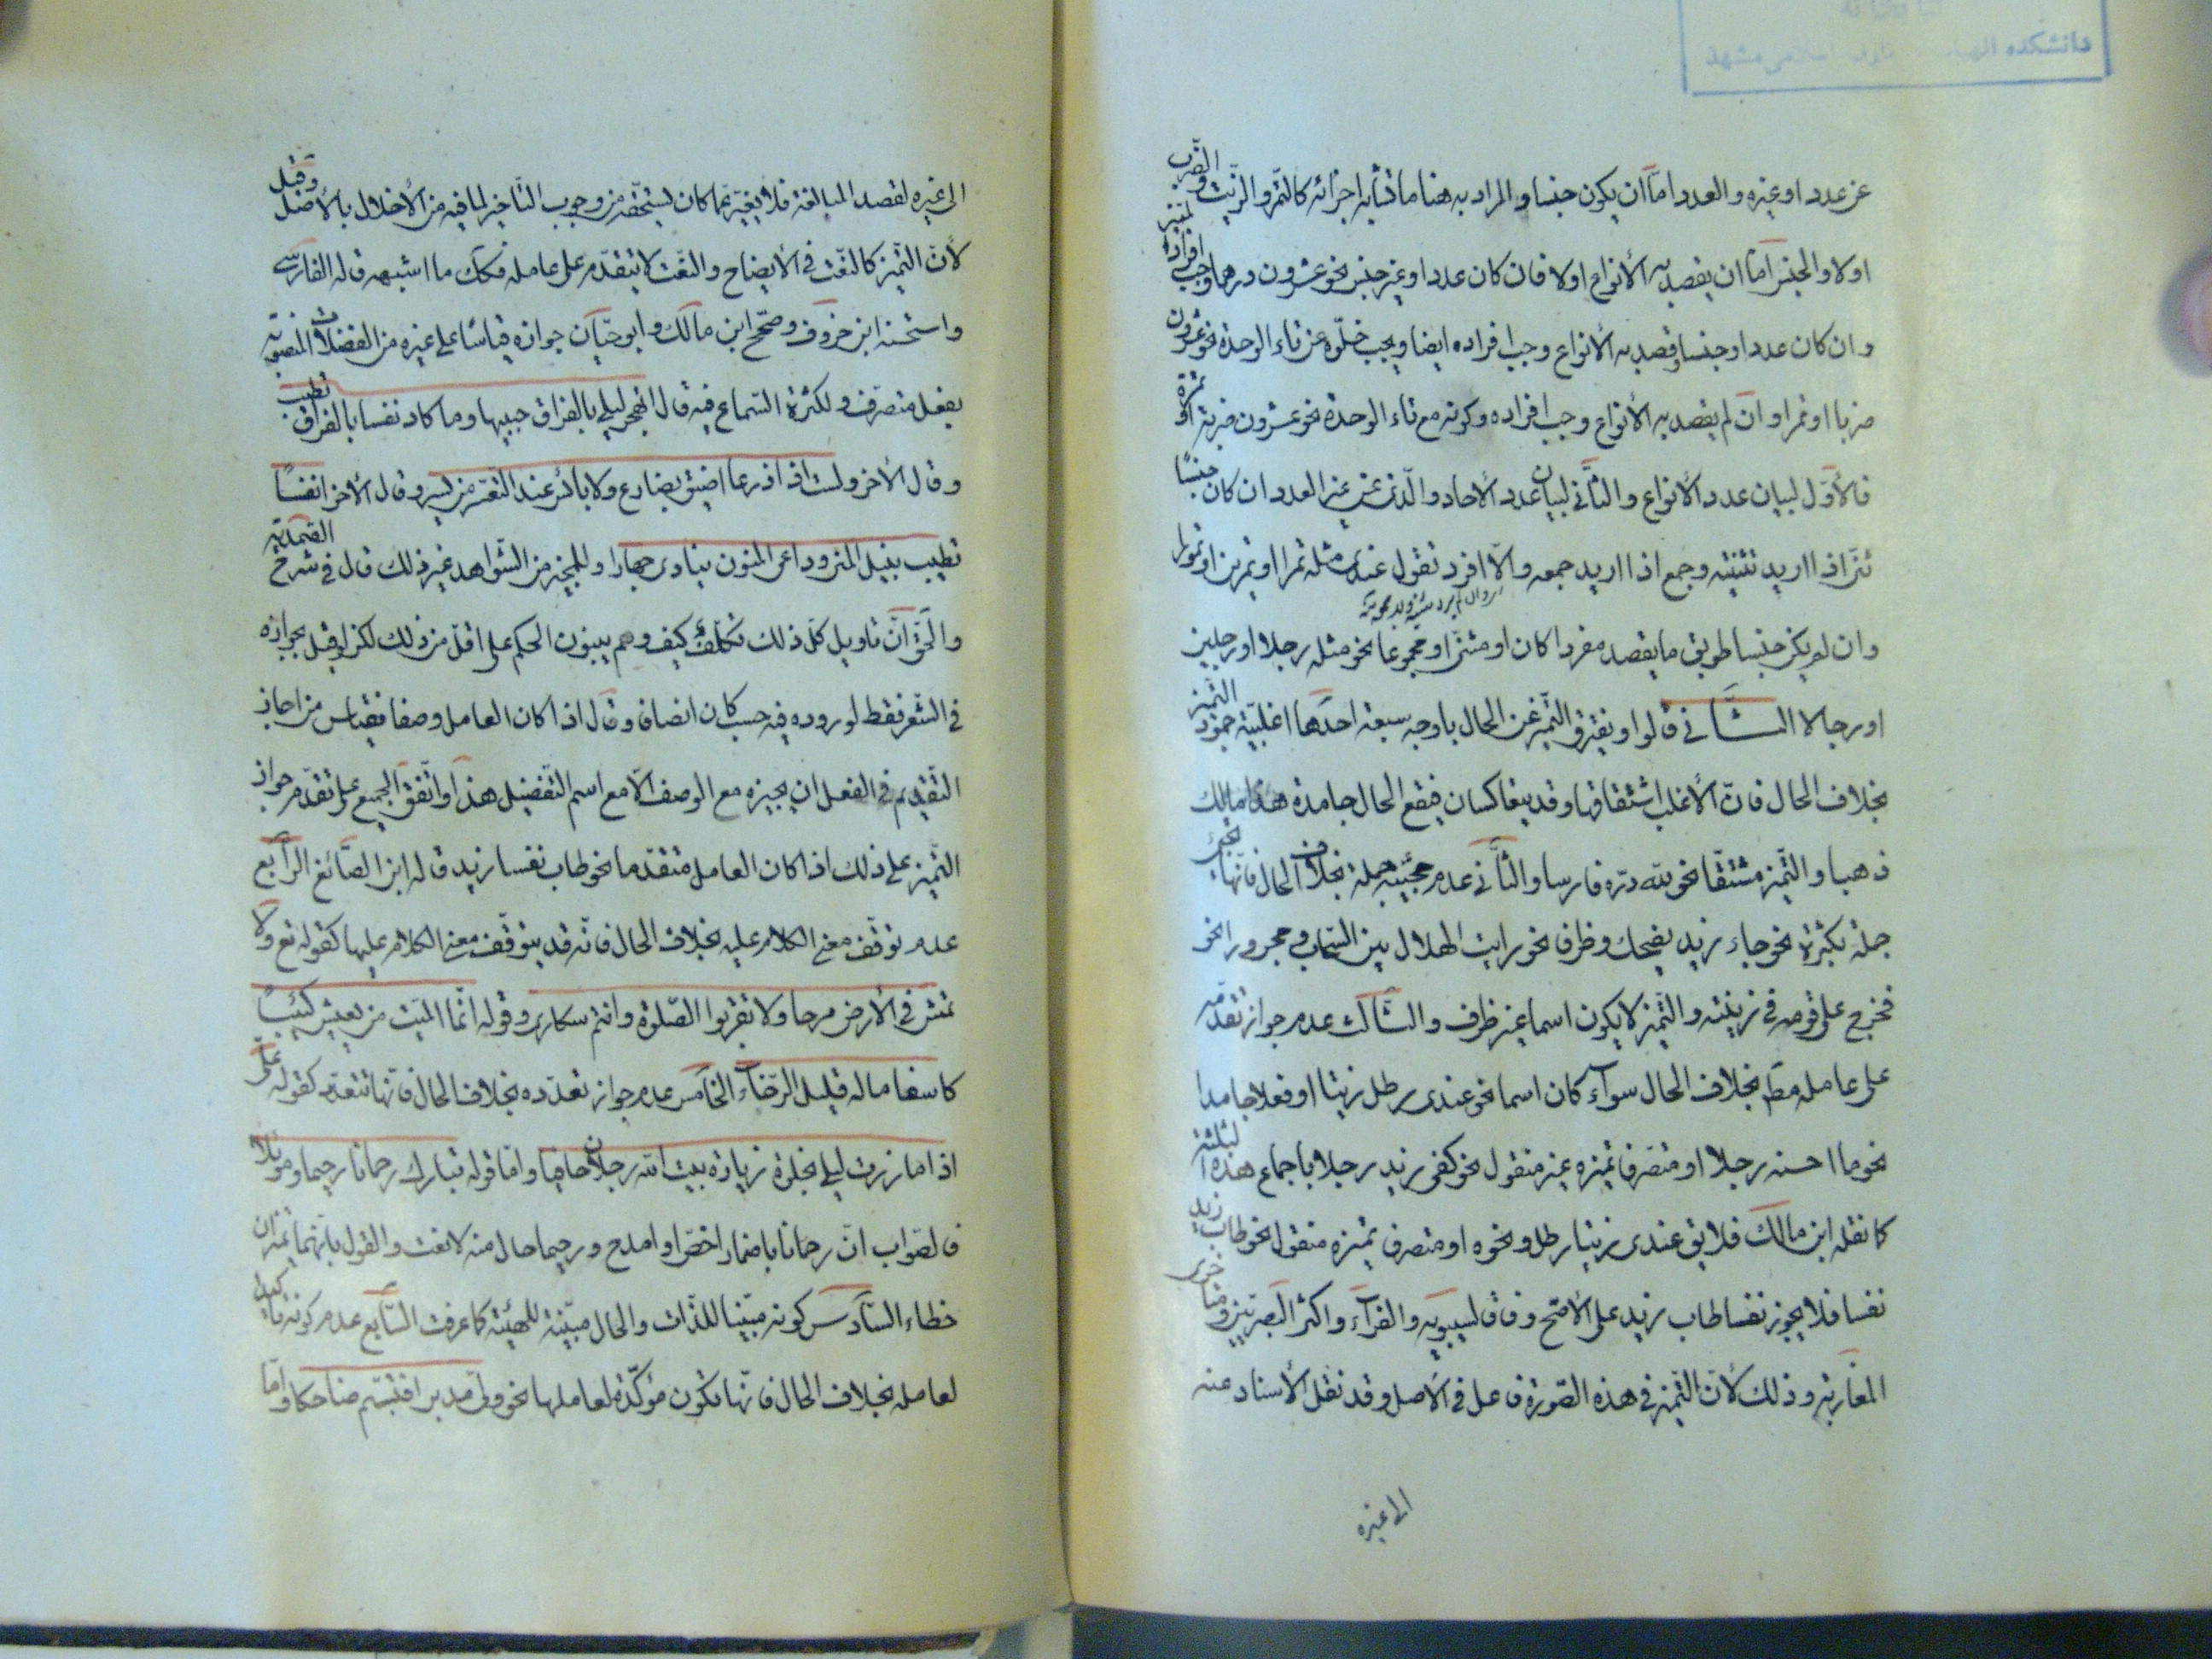 دانشكده الهيات و معارف اسلامی مشهد
عن عدد او غيره والعدد امّا ان يكون جنسا والمراد به هنا ما تشابه اجزائه كالتّمر والزّيت والضّرب
اولا والجنس امّا ان يقصد به الأنواع اولا فان كان عددا وغير جنس نحو عشرون درهما وجب افراده
وان كان عددا وجنسا وقصد به الأنواع وجب افراده ايضا ويجب خلّوه عن تاء الوحدة نحو عشرون
ضربا او تمرا وان لم يقصد به الأنواع وجب افراده وكونه مع تاء الوحدة نحو عشرون ضربة او تمرة
فالأوّل لبيان عدد الأنواع والثّاني لبيان عدد الأحاد والّذى عن غير العدد ان كان جنسًا
ثنّى اذا اريد تثنيته وجمع اذا اريد جمعه والّا افرد تقول عندى مثله تمرا او تمرين او تمورا
وان لم يكن جنسا طوبق ما يقصد مفردا كان او مثنّى او مجموعا نحو مثله رجلا او رجلين
او رجالا الثّاني قالوا ويفترق التّميز عن الحال باوجه سبعة احدها اغلبيّة جمود التّميز
بخلاف الحال فانّ الأغلب اشتقاقها وقد يتعاكسان فيقع الحال جامدة هذا مالك
ذهبا والتّميز مشتقّا نحو لله درّه فارسا والثّاني عدم مجيئه جملة بخلاف الحال فانّها تجئ
جملة بكثرة نحو جاء زيد يضحك وظرف نحو رايت الهلال بين السّحاب ومجرورا نحو
فخرج على قومه فى زينته والتّميز لا يكون اسما غير ظرف والثّالث عدم جواز تقدّمه
على عامله مطّ بخلاف الحال سواء كان اسما نحو عندى رطل زيتا او فعلا جامدا
نحو ما احسنه رجلا او متصرّفا تميزه غير منقول نحو كفى زيد رجلا باجماع هذه الثلثة
كما نقله ابن مالك فلا يق عندى زيتا رطل ونحوه او متصرف تميزه منقول نحو طاب زيد
نفسا فلا يجوز نفسا طاب زيد على الأصّح وفاقا لسيبويه والفرّاء واكثر البصريّين و
المغاربة وذلك لأنّ التّميز فى هذه الصّورة فاعل فى الأصل وقد نقل الأسناد عنه
الى غيره
الى غيره لقصد المبالغة فلا يغيّر عمّا كان يستحّقه من وجوب التّاخير لما فيه من الأخلال بالأصل وقيل
لأنّ التّميز كالنّعت فى الأيضاح والنّعت لا يتقدّم على عامله فكك ما اشبهه قاله الفارسى
واستحسنه ابن خروف وصحّح ابن مالك وابو حيّان جوازه قياسًا على غيره من الفضلات المنصوبة
بفعل متصرّف ولكثرة السّماع فيه قال اتهجر ليلى بالفراق حبيبها وما كاد نفسا بالفراق تطيب
وقال الأخر ولست اذا ذرعا اضيق بضارع ولا يائس عند التّعسّر من يسر وقال الأخر انفسًا
تطيب بنيل المنى وداعى المنون ينادى جهارا وللمجيز من الشّواهد غير ذلك قال فى شرح الصّمديّة
والحّق انّ تاويل كلّ ذلك تكلّف كيف وهم يبنون الحكم على اقلّ من ذلك لكن لو قيل بجوازه
فى الشّعر فقط لوروده فيه حسب كان انصاف وقال اذا كان العامل وصفا فقياس من اجاز
التّقديم فى الفعل ان يجيزه مع الوصف الّا مع اسم التّفضيل هذا واتّفق الجميع على تقدّم جواز
التّميز على ذلك اذا كان العامل متقدّما نحو طاب نفسا زيد قاله ابن الصّائغ الرّابع
عدم توقّف معنى الكلام عليه بخلاف الحال فانّه قد يتوقّف معنى الكلام عليها كقوله تع ولا
تمش فى الأرض مرحا ولا تقربوا الصّلوة وانتم سكارى وقوله انّما الميت من يعيش كئيبًا
كاسفا ماله قليل الرّخاء الخامس عدم جواز تعدّده بخلاف الحال فانّها تتعدّد كقوله علىّ
اذا ما زرت ليلى بخلوة زيارة بيت الله رجلان حافيا وامّا قوله تبارك رحمانا رحيما وموئلا
فالصّواب انّ رحمانا باضمار اخصّ او امدح ورحيما حال منه لا نعت والقول بانّهما تميزان
خطاء السّادس كونه مبّينا للذّات والحال مبيّنة للهيئة كما عرفت السّابع عدم كونه مؤكدا
لعامله بخلاف الحال فانّها تكون مؤكّدة لعاملها نحو ولّى مدبرا فتبسّم ضاحكا وامّا